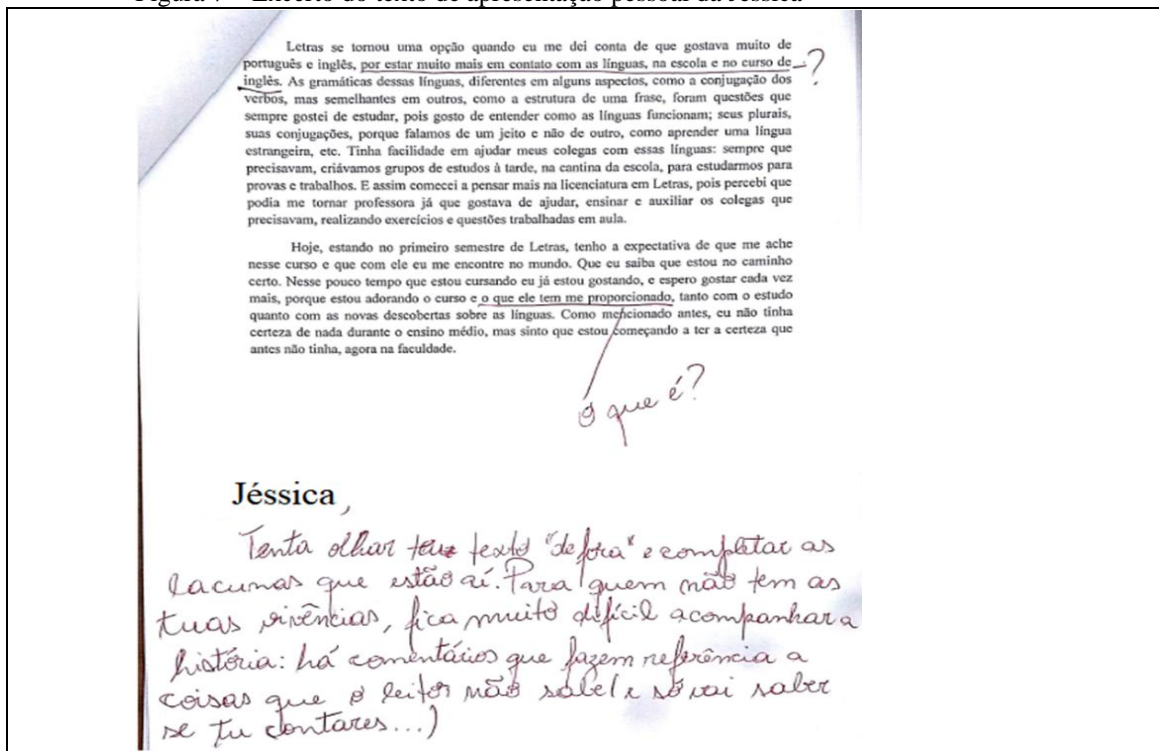 Letras se tornou uma opção quando eu me dei conta de que gostava muito de
português e inglês, por estar muito mais em contato com as línguas, na escola e no curso de –?
inglês. As gramáticas dessas línguas, diferentes em alguns aspectos, como a conjugação dos
verbos, mas semelhantes em outros, como a estrutura de uma frase, foram questões que
sempre gostei de estudar, pois gosto de entender como as línguas funcionam; seus plurais,
suas conjugações, porque falamos de um jeito e não de outro, como aprender uma língua
estrangeira, etc. Tinha facilidade em ajudar meus colegas com essas línguas: sempre que
precisavam, criávamos grupos de estudos à tarde, na cantina da escola, para estudarmos para
provas e trabalhos. E assim comecei a pensar mais na licenciatura em Letras, pois percebi que
podia me tornar professora já que gostava de ajudar, ensinar e auxiliar os colegas que
precisavam, realizando exercícios e questões trabalhadas em aula.
Hoje, estando no primeiro semestre de Letras, tenho a expectativa de que me ache
nesse curso e que com ele eu me encontre no mundo. Que eu saiba que estou no caminho
certo. Nesse pouco tempo que estou cursando eu já estou gostando, e espero gostar cada vez
mais, porque estou adorando o curso e o que ele tem me proporcionado, tanto com o estudo
quanto com as novas descobertas sobre as línguas. Como mencionado antes, eu não tinha
certeza de nada durante o ensino médio, mas sinto que estou começando a ter a certeza que
antes não tinha, agora na faculdade.
O que é?
Jéssica,
Tenta olhar teu texto "de fora" e completar as
lacunas que estão aí. Para quem não tem as
tuas vivências, fica muito difícil acompanhar a
história: há comentários que fazem referência a
coisas que o leitor não sabe (e só vai saber
se tu contares...)